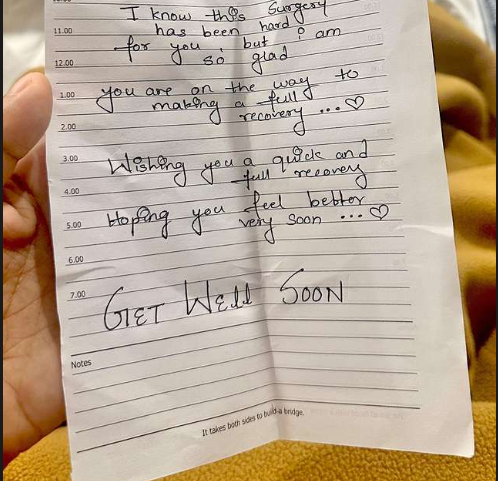 I know this Surgery
11.00
has been hard
for you, but i am
12.00
so glad
1.00
you are on the way to
making a full
recovery ...♡
2.00
3.00
Wishing you a quick and
full recovery
4.00
Hoping you feel better
5.00
very soon ...♡
6.00
7.00
GET WELL SOON
Notes
It takes both sides to build a bridge.